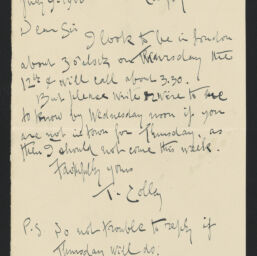 Dear Sir
I look to be in London
about 3 oclock on Thursday the
12th & will call about 3.30.
But please write or wire to me
to know by Wednesday noon if you
are not in town for Thursday, as
then I should not come this week.
Faithfully yours
T. Colley
P.S Do not trouble to reply if
Thursday will do.